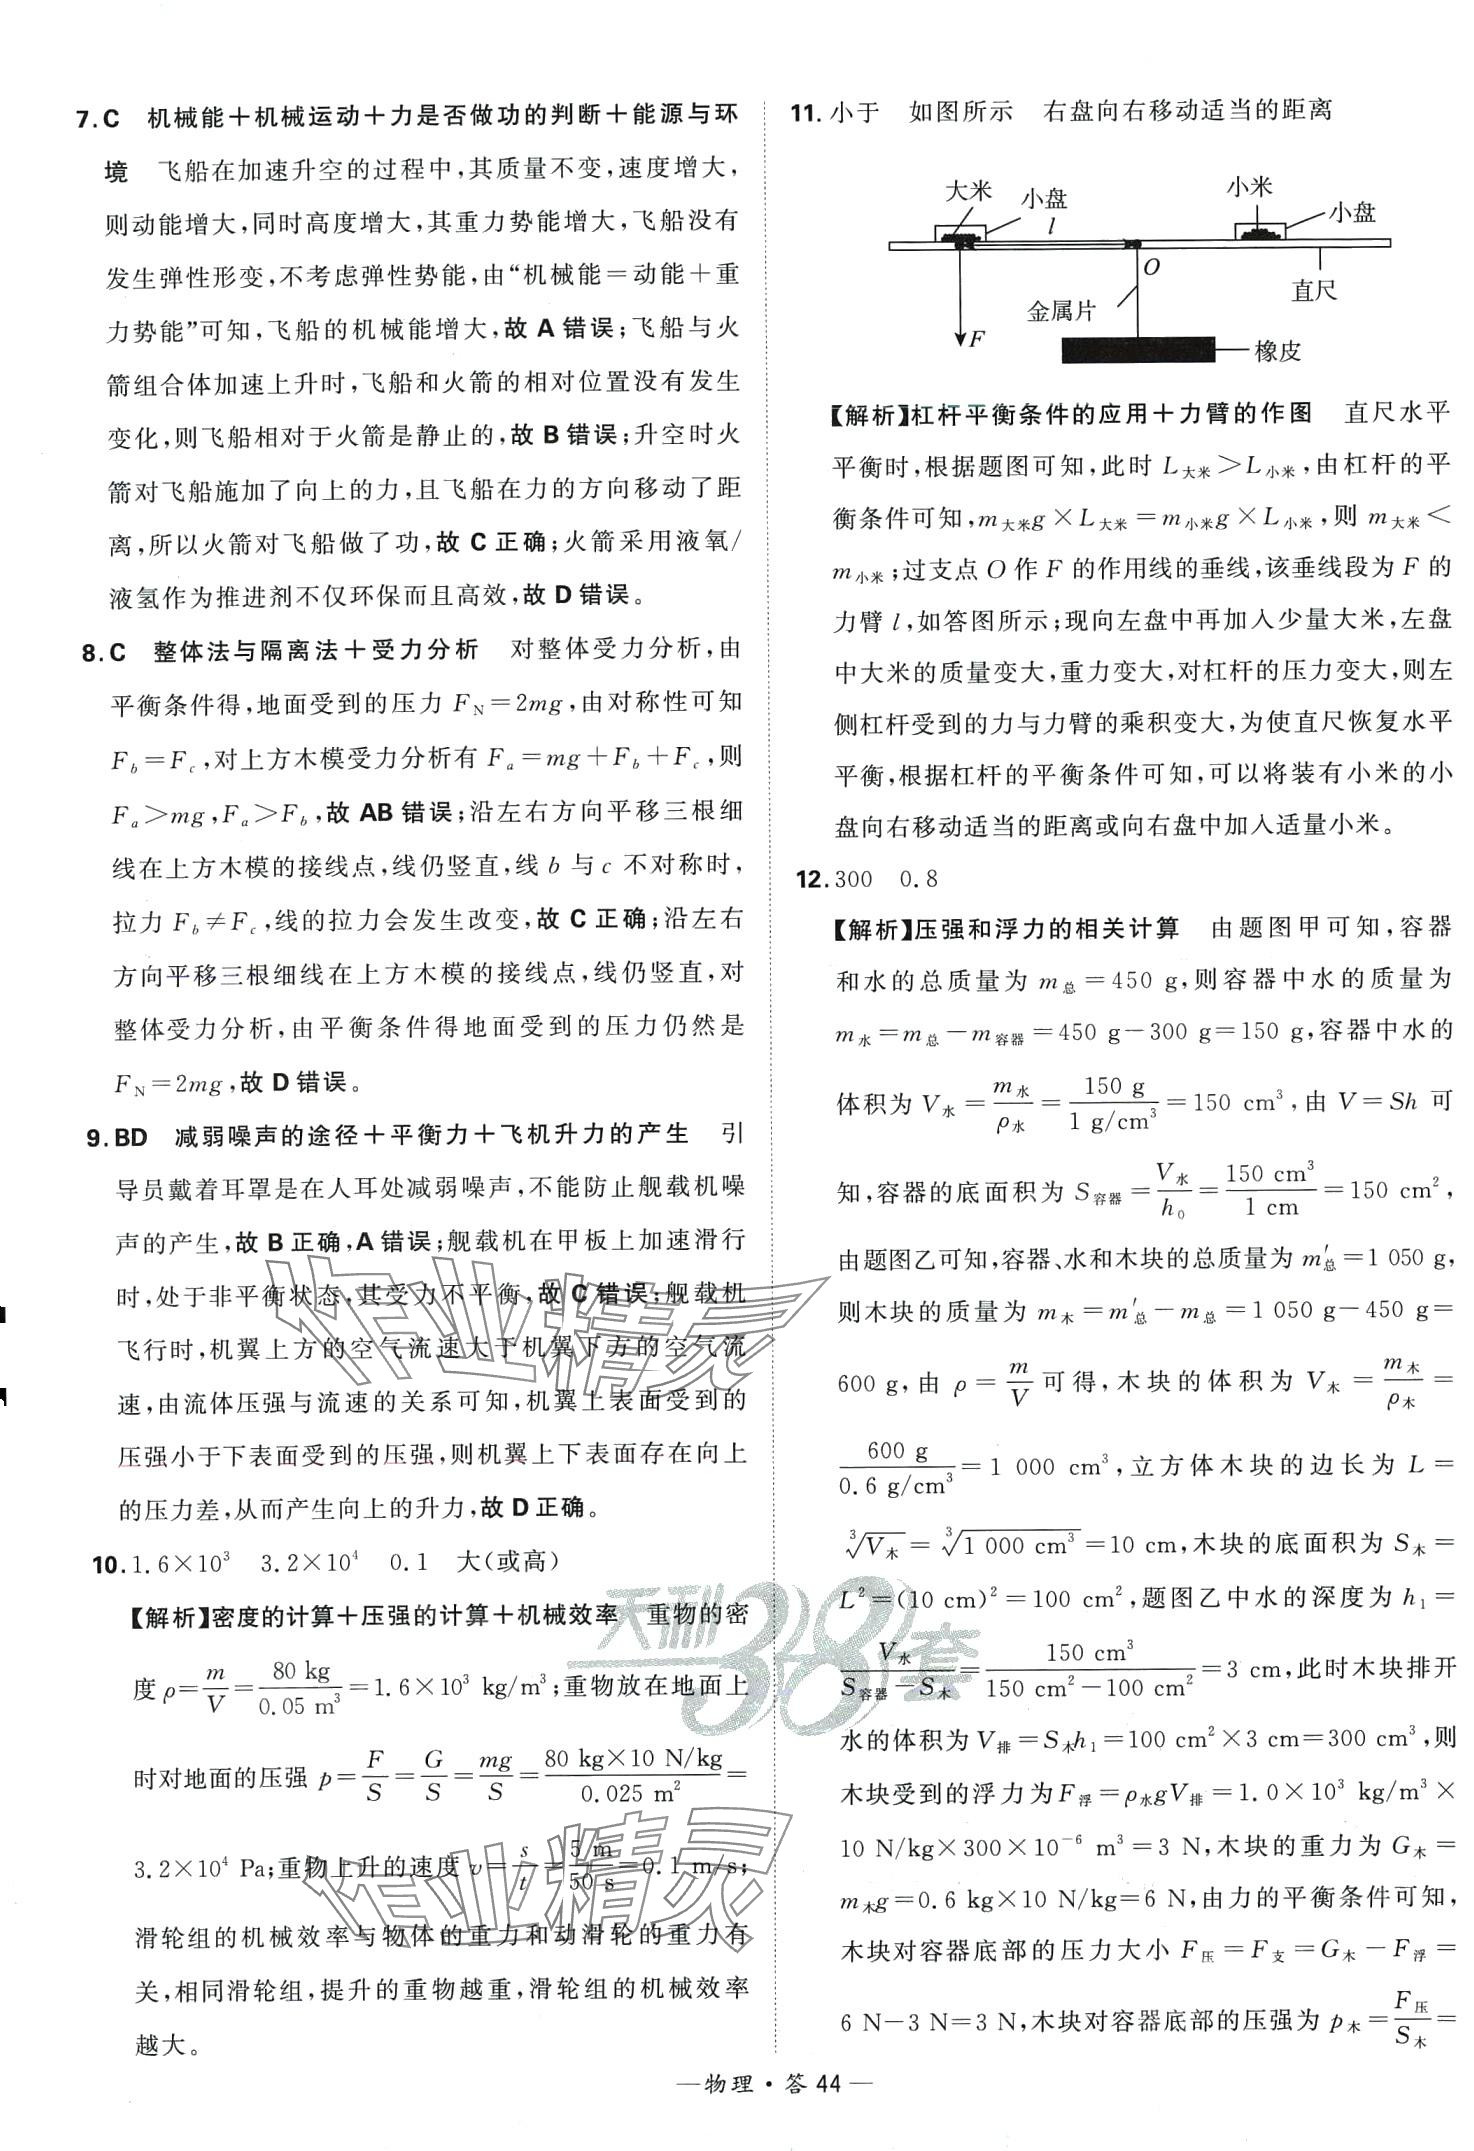 7. C　机械能＋机械运动＋力是否做功的判断＋能源与环
境　飞船在加速升空的过程中,其质量不变,速度增大,
则动能增大,同时高度增大,其重力势能增大,飞船没有
发生弹性形变,不考虑弹性势能,由“机械能＝动能＋重
力势能”可知,飞船的机械能增大,故 A 错误;飞船与火
箭组合体加速上升时,飞船和火箭的相对位置没有发生
变化,则飞船相对于火箭是静止的,故 B 错误;升空时火
箭对飞船施加了向上的力,且飞船在力的方向移动了距
离,所以火箭对飞船做了功,故 C 正确;火箭采用液氧/
液氢作为推进剂不仅环保而且高效,故 D 错误。
8. C　整体法与隔离法＋受力分析　对整体受力分析,由
平衡条件得,地面受到的压力 F_N＝2mg,由对称性可知
F_b＝F_c,对上方木模受力分析有 F_a＝mg＋F_b＋F_c,则
F_a＞mg,F_a＞F_b,故 AB 错误;沿左右方向平移三根细
线在上方木模的接线点,线仍竖直,线 b 与 c 不对称时,
拉力 F_b≠F_c,线的拉力会发生改变,故 C 正确;沿左右
方向平移三根细线在上方木模的接线点,线仍竖直,对
整体受力分析,由平衡条件得地面受到的压力仍然是
F_N＝2mg,故 D 错误。
9. BD　减弱噪声的途径＋平衡力＋飞机升力的产生　引
导员戴着耳罩是在人耳处减弱噪声,不能防止舰载机噪
声的产生,故 B 正确,A 错误;舰载机在甲板上加速滑行
时,处于非平衡状态,其受力不平衡,故 C 错误;舰载机
飞行时,机翼上方的空气流速大于机翼下方的空气流
速,由流体压强与流速的关系可知,机翼上表面受到的
压强小于下表面受到的压强,则机翼上下表面存在向上
的压力差,从而产生向上的升力,故 D 正确。
10. 1.6×10³　3.2×10⁴　0.1　大(或高)
【解析】密度的计算＋压强的计算＋机械效率　重物的密
度 ρ＝m/V＝80 kg/0.05 m³＝1.6×10³ kg/m³;重物放在地面上
时对地面的压强 p＝F/S＝G/S＝mg/S＝80 kg×10 N/kg/0.025 m²＝
3.2×10⁴ Pa;重物上升的速度 v＝s/t＝5 m/50 s＝0.1 m/s;
滑轮组的机械效率与物体的重力和动滑轮的重力有
关,相同滑轮组,提升的重物越重,滑轮组的机械效率
越大。
11. 小于　如图所示　右盘向右移动适当的距离
大米　小盘　l　小米　小盘
O　直尺
金属片
F　橡皮
【解析】杠杆平衡条件的应用＋力臂的作图　直尺水平
平衡时,根据题图可知,此时 L_大米＞L_小米,由杠杆的平
衡条件可知,m_大米g×L_大米＝m_小米g×L_小米,则 m_大米＜
m_小米;过支点 O 作 F 的作用线的垂线,该垂线段为 F 的
力臂 l,如答图所示;现向左盘中再加入少量大米,左盘
中大米的质量变大,重力变大,对杠杆的压力变大,则左
侧杠杆受到的力与力臂的乘积变大,为使直尺恢复水平
平衡,根据杠杆的平衡条件可知,可以将装有小米的小
盘向右移动适当的距离或向右盘中加入适量小米。
12. 300　0.8
【解析】压强和浮力的相关计算　由题图甲可知,容器
和水的总质量为 m_总＝450 g,则容器中水的质量为
m_水＝m_总－m_容器＝450 g－300 g＝150 g,容器中水的
体积为 V_水＝m_水/ρ_水＝150 g/1 g/cm³＝150 cm³,由 V＝Sh 可
知,容器的底面积为 S_容器＝V_水/h₀＝150 cm³/1 cm＝150 cm²,
由题图乙可知,容器、水和木块的总质量为 m′_总＝1 050 g,
则木块的质量为 m_木＝m′_总－m_总＝1 050 g－450 g＝
600 g,由 ρ＝m/V 可得,木块的体积为 V_木＝m_木/ρ_木＝
600 g/0.6 g/cm³＝1 000 cm³,立方体木块的边长为 L＝
∛V_木＝∛1 000 cm³＝10 cm,木块的底面积为 S_木＝
L²＝(10 cm)²＝100 cm²,题图乙中水的深度为 h₁＝
V_水/(S_容器－S_木)＝150 cm³/(150 cm²－100 cm²)＝3 cm,此时木块排开
水的体积为 V_排＝S_木h₁＝100 cm²×3 cm＝300 cm³,则
木块受到的浮力为 F_浮＝ρ_水gV_排＝1.0×10³ kg/m³×
10 N/kg×300×10⁻⁶ m³＝3 N,木块的重力为 G_木＝
m_木g＝0.6 kg×10 N/kg＝6 N,由力的平衡条件可知,
木块对容器底部的压力大小 F_压＝F_支＝G_木－F_浮＝
6 N－3 N＝3 N,木块对容器底部的压强为 p_木＝F_压/S_木＝
—物理·答 44—
作业精灵
天利38套
作业精灵